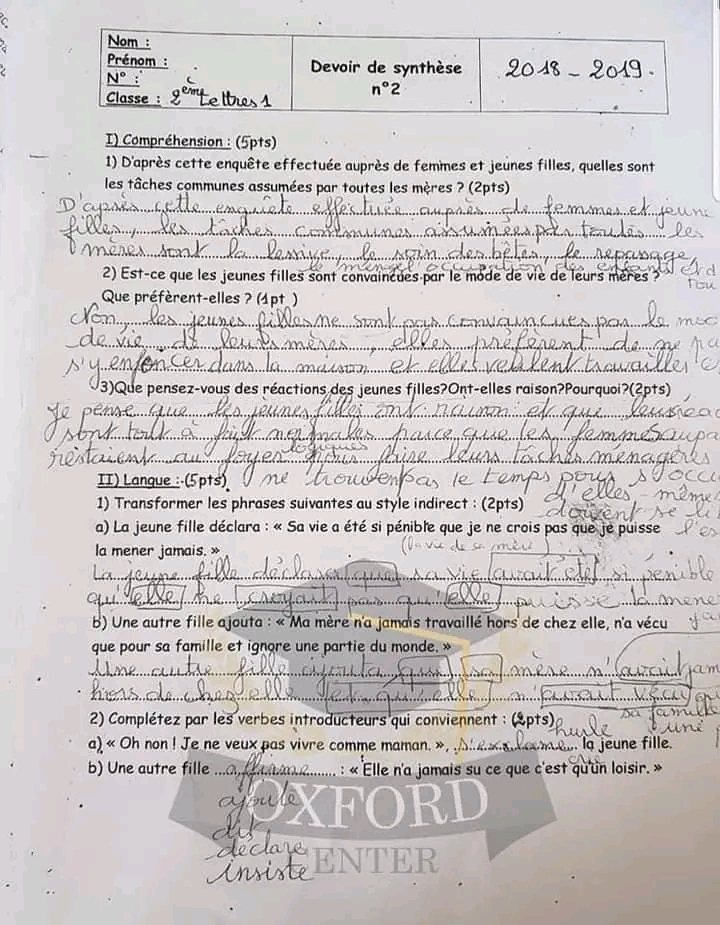 Nom :
Prénom :
N° :
Classe : 2ème Lettres 1
Devoir de synthèse
n°2
2018 - 2019.
I) Compréhension : (5pts)
1) D'après cette enquête effectuée auprès de femmes et jeunes filles, quelles sont
les tâches communes assumées par toutes les mères ? (2pts)
D'après cette enquête effectuée auprès de femmes et jeune
filles, les tâches communes assumées par toutes les
mères sont la lessive, le soin des bêtes, le repassage,
le occupation des enfants et d
2) Est-ce que les jeunes filles sont convaincues par le mode de vie de leurs mères ?
Que préfèrent-elles ? (1pt )
Non, les jeunes filles ne sont pas convaincues par le mod
de vie de leurs mères, elles préfèrent de ne pa
s'y enfoncer dans la maison et elles veulent travailler
3)Que pensez-vous des réactions des jeunes filles?Ont-elles raison?Pourquoi?(2pts)
Je pense que les jeunes filles ont raison et que leurs réac
sont tout à fait normales parce que les femmes aupa
logiques
restaient au foyer pour faire leurs tâches ménagères
II) Langue : (5pts) ne trouvent pas le temps pour s'occu
d'elles-même
1) Transformer les phrases suivantes au style indirect : (2pts)
doivent se li
a) La jeune fille déclara : « Sa vie a été si pénible que je ne crois pas que je puisse
la mener jamais. »
(la vie de sa mère)
La jeune fille déclara que sa vie avait été si pénible
qu'elle ne croyait pas qu'elle puisse la mene
b) Une autre fille ajouta : « Ma mère n'a jamais travaillé hors de chez elle, n'a vécu
que pour sa famille et ignore une partie du monde. »
Une autre fille ajouta que sa mère n'avait jam
hors de chez elle et qu'elle n'avait vécu qu
sa famille
2) Complétez par les verbes introducteurs qui conviennent : (2pts)
hurle
a) « Oh non ! Je ne veux pas vivre comme maman. », s'exclame la jeune fille.
crie
b) Une autre fille affirme : « Elle n'a jamais su ce que c'est qu'un loisir. »
ajoute
dit
déclare
insiste
OXFORD
CENTER